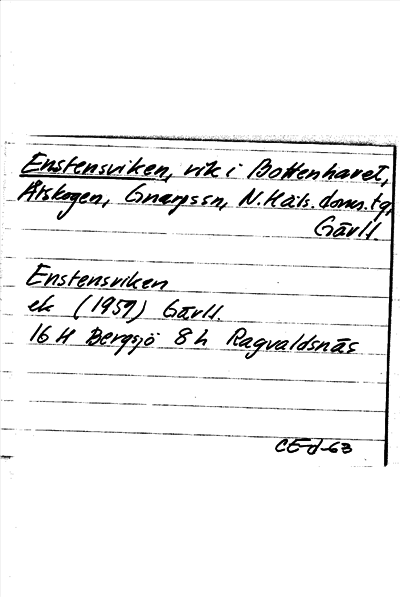 Enstensviken, vik i Bottenhavet,
Årskogen, Gnarpssn, N. Häls. doms. tg,
Gävll.
Enstensviken
ek (1957) Gävll.
16 H Bergsjö 8 h Ragvaldsnäs
CE-d-63